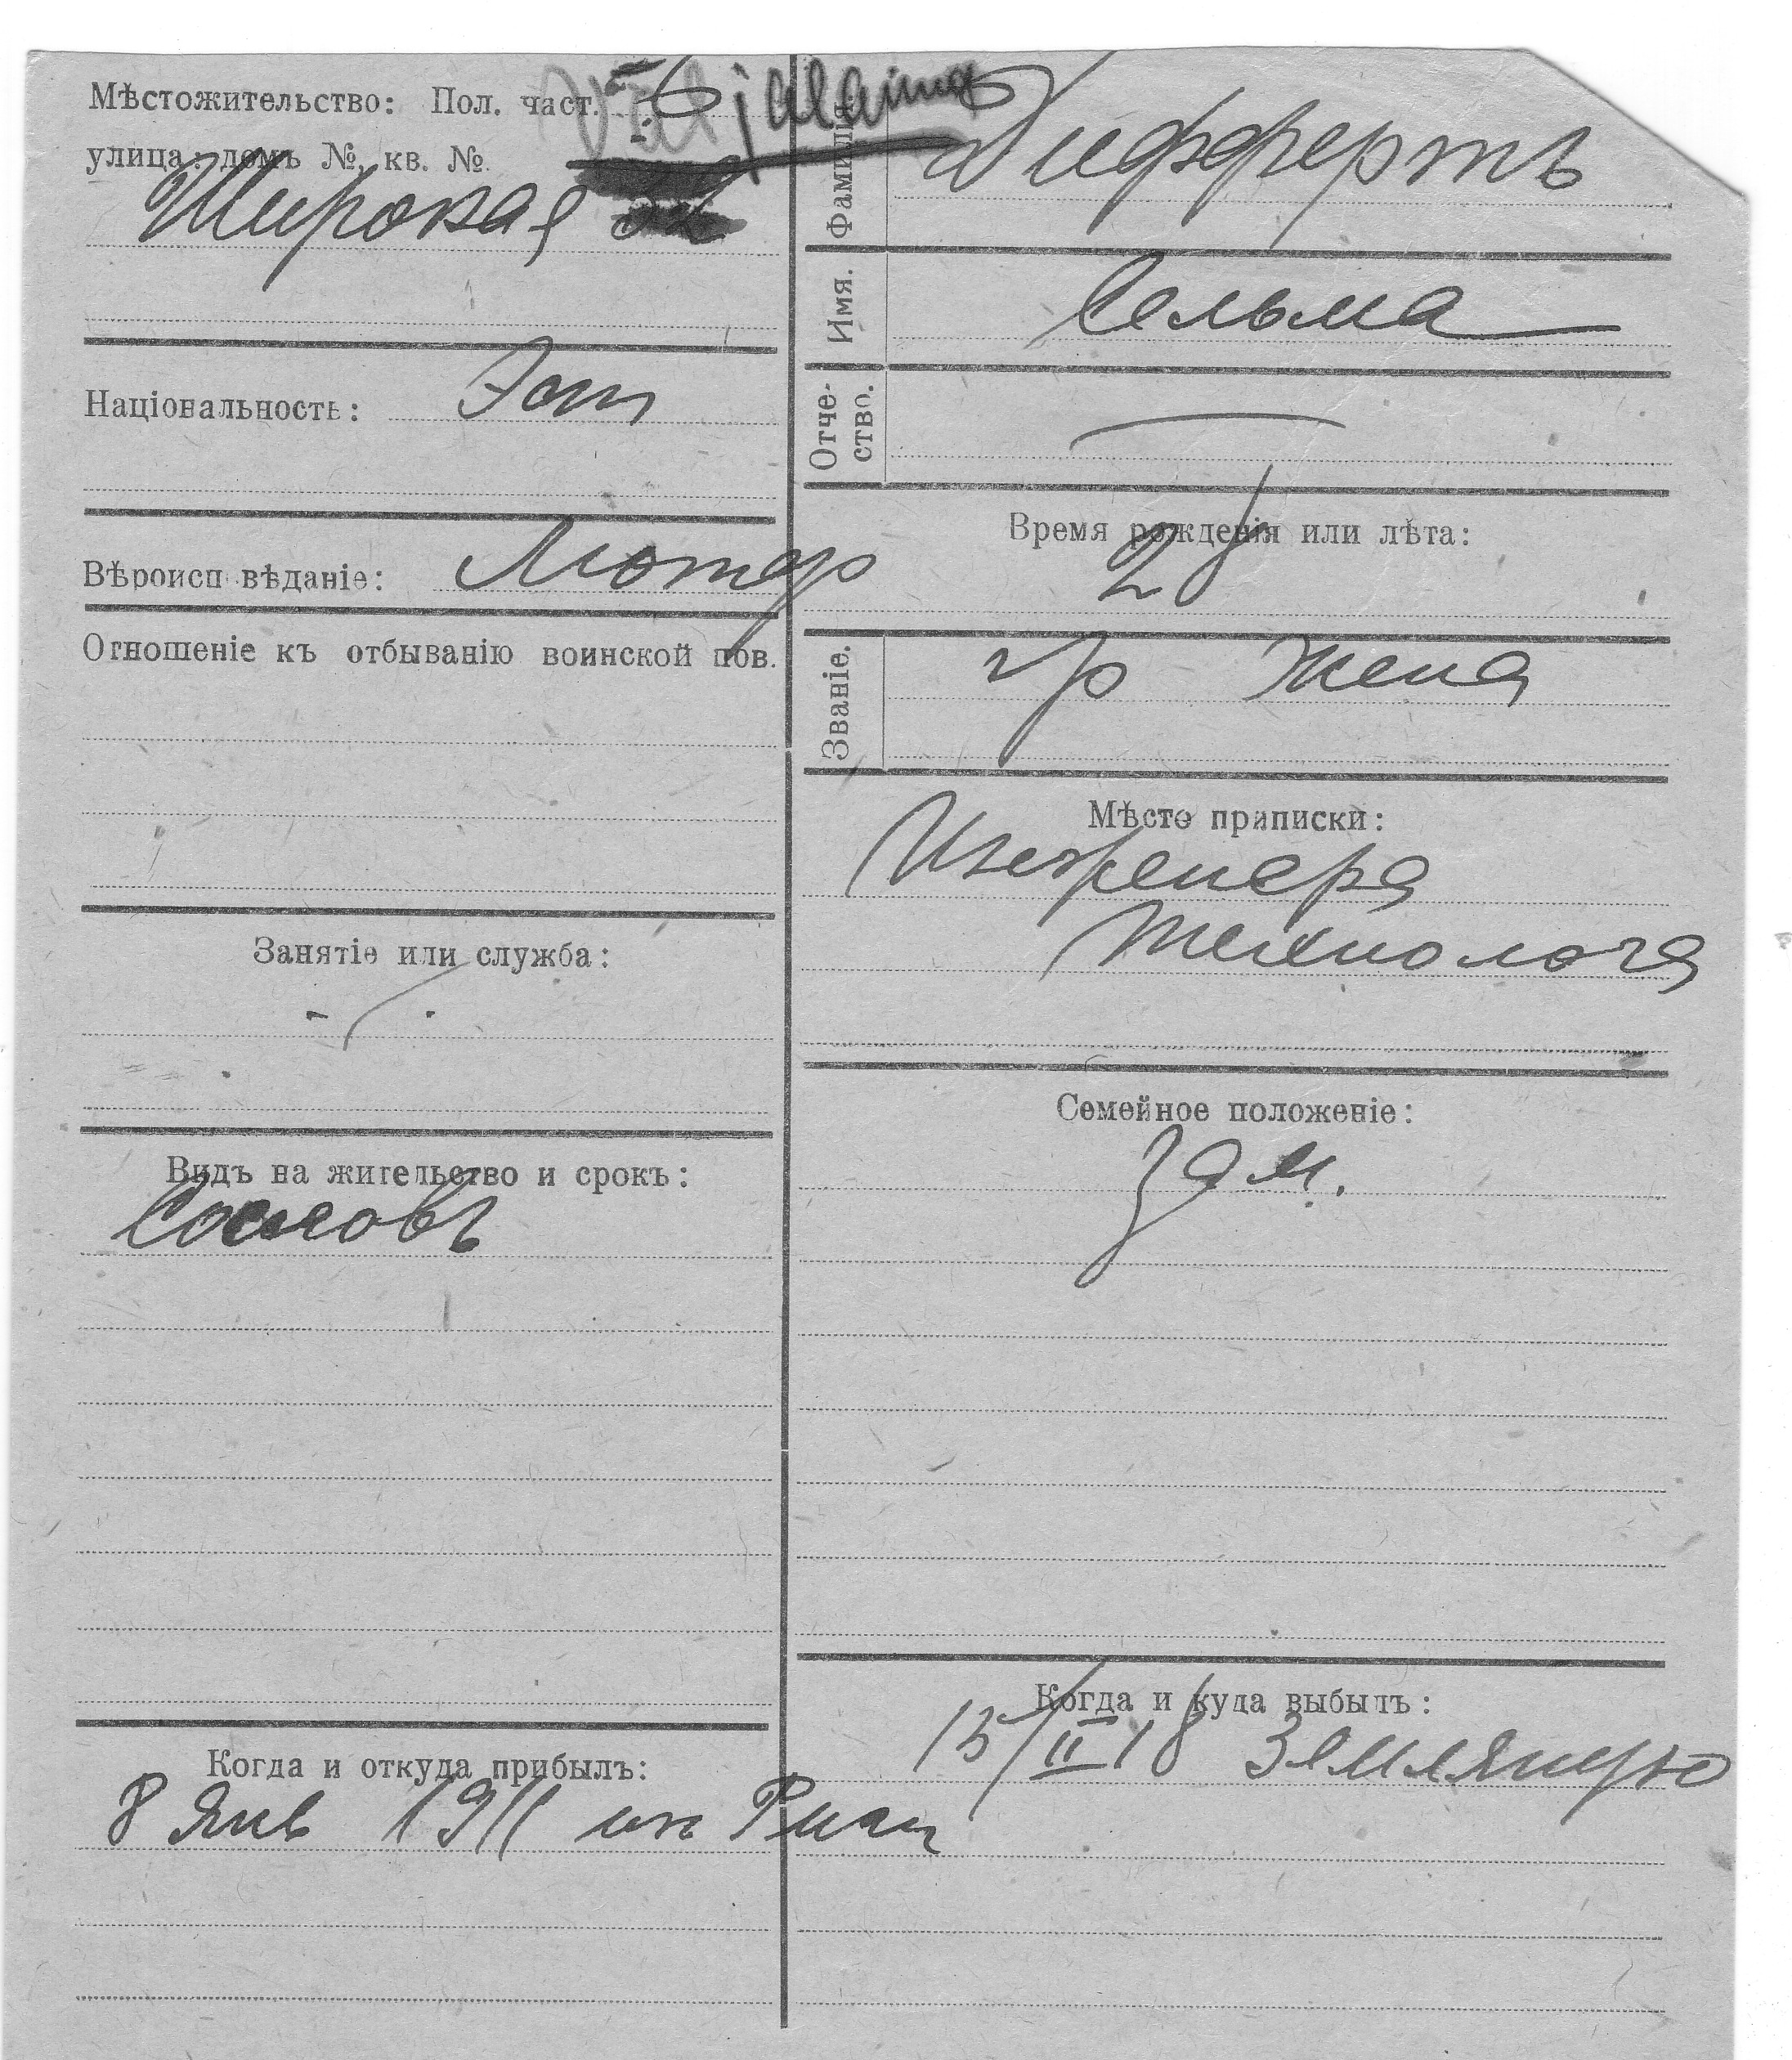 Мѣстожительство: Пол. част. 6
Väljaläinud
улица: домъ №, кв. №.
Широкая 32
Національность: Эст
Вѣроисп вѣданіе: Лютер
Отношеніе къ отбыванію воинской пов.
Занятіе или служба:
Видъ на жительство и срокъ:
Когда и откуда прибылъ:
8 Янв 1911 из Риги
Фамилія.
Дуфферть
Имя. Сельма
Отче-
ство.
Время рожденія или лѣта:
28
Званіе. гр жена
Мѣсто приписки:
Инженера
технолога
Семейное положеніе:
зам.
Когда и куда выбылъ:
15/II 18 Земляную